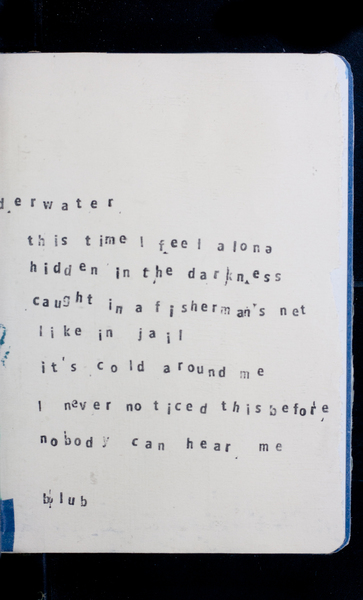 derwater
this time I feel alone
hidden in the darkness
caught in a fisherman's net
like in jail
it's cold around me
I never noticed this before
nobody can hear me
blub